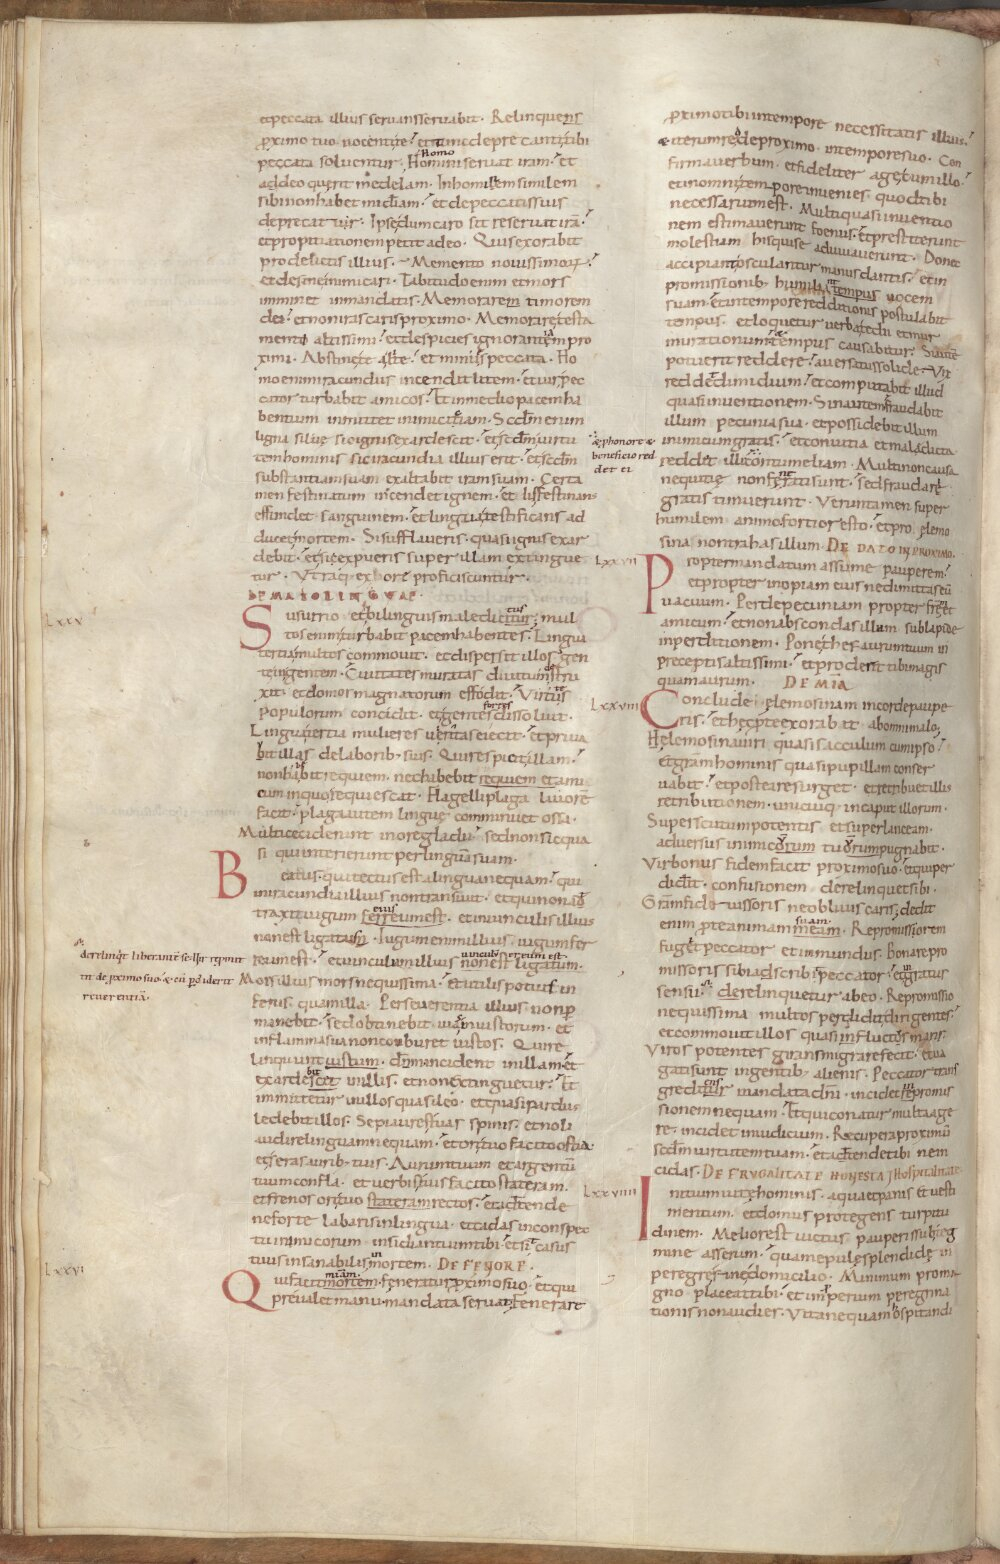 etpeccata illius seruansseruabit. Relinquens
proximo tuo nocentite. ettuncdeprecantitibi
peccata soluentur. Homo
Homini seruat iram. et
addeo querit medelam. Inhominem similem
sibi nonhabet mĩdiam. etdepeccatissuis
deprecatur. Ipsedumcaro sit reseruat irã.
etpropitiationem petit adeo. Quisexorabit
prodelictis illius. Memento nouissimorum
etdesineinimicari. Tabitudoenim etmors
imminet inmandatis. Memorarem timorem
dei. etnonirascarisproximo. Memoraretesta
mento altissimi. etdespicies ignorantem pro
ximi. Abstinete alite. et minuis peccata. Ho
moenimiracundus incendit litem. etuirpec
cator turbabit amicos. Et inmediopacemha
bentium inmittet inimicitiam. Scdm enim
ligna siluę sicignisexardescit. et scdm uirtu
temhominis siciracundia illius erit. et scdm
substantiamsuam exaltabit iramsuam. Certa
men festinatum incendet ignem. et lis festinans
effundet sanguinem. etlingua testificans ad
ducet mortem. Sisufflaueris. quasiignisexar
debit. etsiexpueris super illam extingue
tur. Utraque exhore proficiscuntur.
DE MALO LINGUAE.
LXXV
Susurrio etbilinguis maledictus
mul
tosenim turbabit pacemhabentes. Lingua
tertia multos commouit. etdispersit illos gen
teingentem. Ciuitates muratas diuitum destru
xit. etdomos magnatorum effodit. Virtutes
populorum concidit. etgentes fortes dissoluit.
Lingua tertia mulieres ueritas eiecit. etpriua
bit illas delaborib. suis. Quirespicit illam.
nonhabitrequiem. nechabebit requiem etami
cum inquorequiescat. Flagelli plaga liuorẽ
facit. plagaautem linguę comminuet ossa.
Multiceciderunt inoregladii. sednonsicqua
si qui interierunt perlinguãsuam.
Beatus. quitectus estalinguanequam. qui
iniracundia illius nontransiuit. etquinonat
traxit iugum eius
ferreumest. etinuinculisillius
nonest ligatum. Iugumenimillius. iugumfer
reumest. etuinculumillius uinculum ereum est
nonest ligatum.
Mors illius morsnequissima. etutilis potius in
fernis. quamilla. Perseuerentia illius nonp
manebit. sedobtinebit uiãiniustorum. et
inflammasuanoncomburet iustos. Quire
linquunt iustum. dm incident inillam. et
exardescet bit inillis. etnonextinguetur. Et
immittetur inillos quasileo. etquasipardus
ledebit illos. Sepiauresituas spinis. etnoli
audirelinguamnequam. etorituo facito ostia.
etseras aurib. tuis. Aurumtuum etargentũ
tuumconfla. et uerbistuis facitostateram.
etfrenos orituo stateram rectos. etattende
neforte labarisinlingua. etcadas inconspec
tu inimicorum insidiantiumtibi. etsit casus
tuusinsanabilis inmortem. DE FENORE.
LXXVI
Quifacit mĩam
mortem. feneraturproximosuo. etqui
preualet manu. mandata seruat. Fenerare
derelinqet liberanẽ se. ihs repmit
tit de proximo suo. & cũ pdiderit
reuerentiã.
proximotibi intempore necessitatis illius.
et iterumreddeproximo. intemporesuo. Con
firmauerbum. etfideliter agecumillo.
etinomnitempore inuenies. quodtibi
necessariumest. Multiquasiinuentio
nem estimauerunt foenus. etprestiterunt
molestiam hisquise adiuuauerunt. Donec
accipiant osculantur manusdantis. etin
promissionib. humiliant
tempus uocem
suam. etintempore redditionis postulabit
tempus. etloquetur uerbatedii etmur
murationum. ettempus causabitur. Siaute
potuerit reddere. auersatur solide. Vix
reddet dimidium. etcomputabit illud
quasiinuentionem. Sinautem fraudabit
illum pecuniasua. etpossidebit illum
inimicum gratis. etconuitia etmaledicta
reddet illi. contumeliam. Multinoncausa
nequitię nonfenerati sunt. sedfraudare
gratis timuerunt. Veruntamen super
humilem animofortior esto. etpro elemo
sina nontrahasillum. DE DATO IN PROXIMO.
& phonore &
beneficio red
det ei
LXXVII
Proptermandatum assume pauperem.
etpropter inopiam eius nedimittaseũ
uacuum. Perdepecuniam propter fratrẽ
amicum. etnonabscondasillam sublapide
inperditionem. Ponethesaurumtuum in
preceptisaltissimi. etproderit tibimagis
quamaurum. DE MĨA
LXXVIII
Conclude ęlemosinam incordepaupe
ris. ethęcpteexorabit abomnimalo,
Helemosinauiri quasisacculum cumipso.
etgram hominis quasipupillam conser
uabit. etposteareurget. etretribuetillis
retributionem. unicuique incaput illorum.
Superscutumpotentis etsuperlanceam.
aduersus inimicorum tuorum pugnabit.
Virbonus fidemfacit proximosuo. etquiper
didit. confusionem derelinquetsibi.
Gramfideiussoris neobliuiscaris, dedit
enim pteanimam suam
meam. Repromissorem
fuget peccator etimmundus. bonarepro
missoris sibiadscribit peccator. etingratus
sensu. derelinquetur abeo. Repromissio
nequissima multos perdidit dirigentes.
etcommouit illos quasi influctus maris.
Viros potentes girans migrarefecit. etua
gatisunt ingentib. alienis. Peccator trans
grediens mandata dni. incidet inrepromis
sionemnequam. Etquiconatur multaage
re. incidet iniudicium. Recuperaproximũ
scdmuirtutemtuam. etattendetibi nein
cidas. DE FRUGALITATE HONESTA ⁊ hospitalitate.
LXXVIIII
Initiumuitęhominis. aquaetpanis et uesti
mentum. etdomus protegens turpitu
dinem. Meliorest uictus pauperissubteg
mine asserum. quamepulęsplendidę in
peregre sinedomicilio. Minimum proma
gno placeattibi. et improperium peregrina
tionis nonaudies. Vitanequam hospitandi